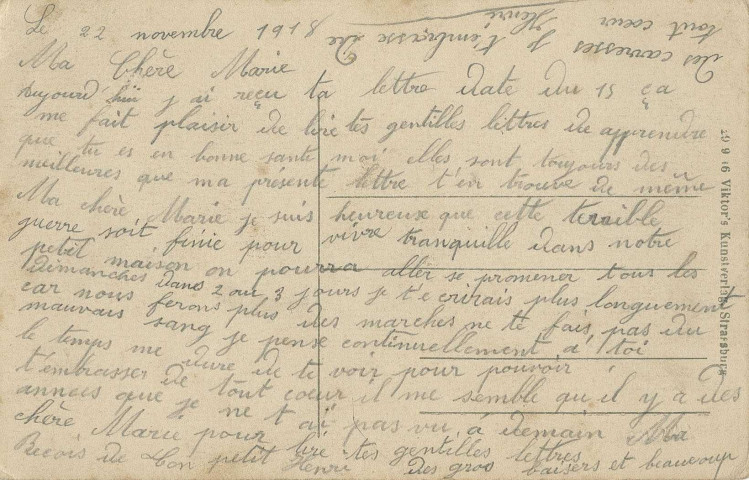 Le 22 novembre 1918
Ma Chère Marie
Aujourd'hui j'ai reçu ta lettre date du 15 ça
me fait plaisir de lire tes gentilles lettres de apprendre
que tu es en bonne sante moi elles sont toujours des
meilleures que ma présente lettre t'en trouve de même
Ma chère Marie je suis heureux que cette terrible
guerre soit finie pour vivre tranquille dans notre
petit maison on pourra aller se promener tous les
dimanches dans 2 ou 3 jours je t'ecrirais plus longuement
car nous ferons plus des marches ne te fais pas du
mauvais sang je pense continuellement a toi
le temps me dure de te voir pour pouvoir
t'embrasser de tout cœur il me semble qu'il y a des
annees que je ne t'ai pas vu, a demain Ma
chère Marie pour lire tes gentilles lettres
Recois de ton petit Henri des gros baisers et beaucoup
des carresses je t'embrasse de
tout cœur Henri
29 9 16 Viktor's Kunstverlag Strassburg